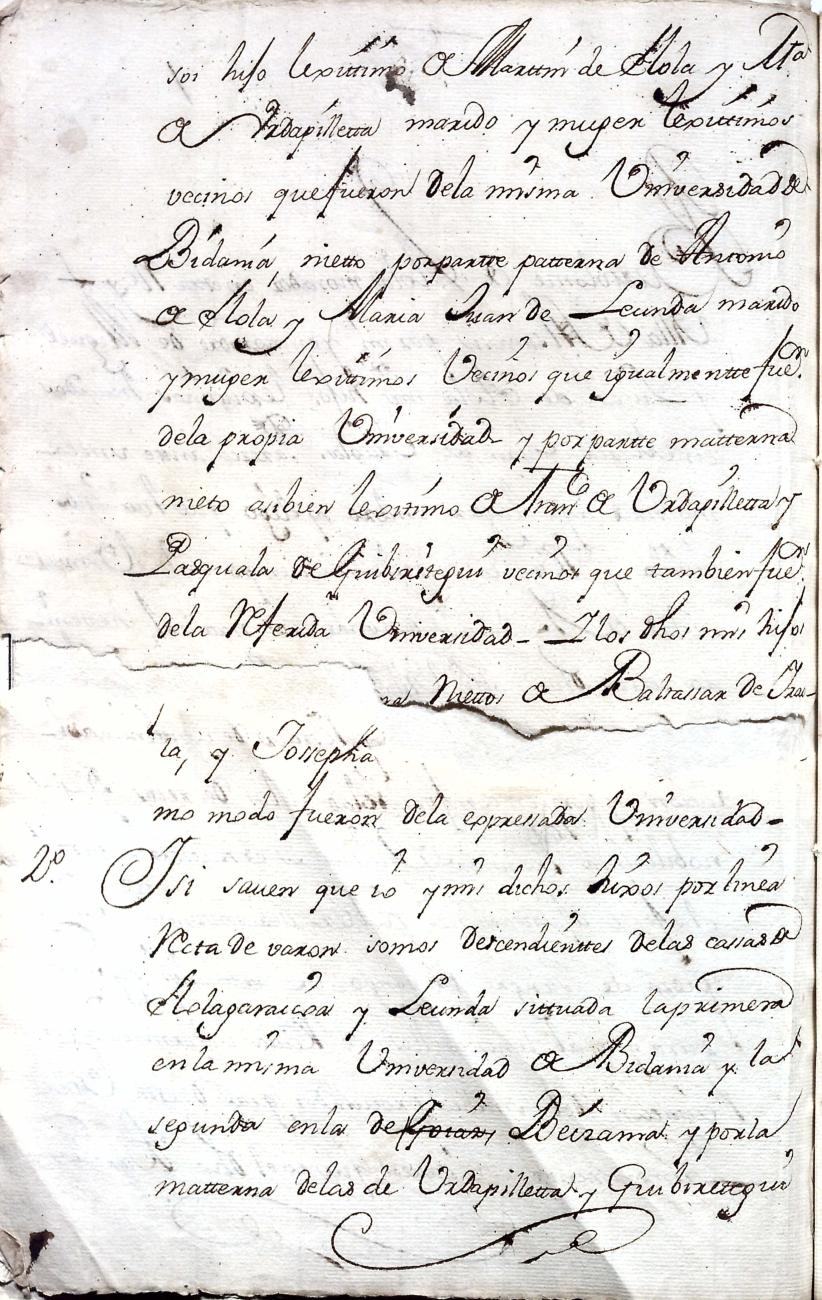 soi hijo lexittimo de Marttin de Olola y Mta
de Vrdapilletta marido y muger lexittimos
vecinos que fueron dela misma Vniversidad de
Bidania, nietto por partte patterna de Antonio
de Olola y Maria Juan de Lecunda marido
y muger lexittimos Vecinos que igualmentte fueron
dela propia Vniversidad y por partte matterna
nieto asibien lexitimo de Franco de Vrdapilletta y
Pasquala de Guibisstegui vecinos que tambien fueron
dela Referida Vniversidad - Ylos dhos mis hijos
na Niettos de Balttassar de
la, y Jossepha
mo modo fueron dela expressada Vniversidad -
2o. Ysi saven que io y mis dichos hixos por linea
Recta de varon somos descendienttes delas cassas de
Ololagaraicoa y Lecunda sittuada la primera
en la misma Vniversidad de Bidania y la
segunda en la de Goiaz, Beizama y por la
matterna delas de Vrdapilletta y Guibiretegui